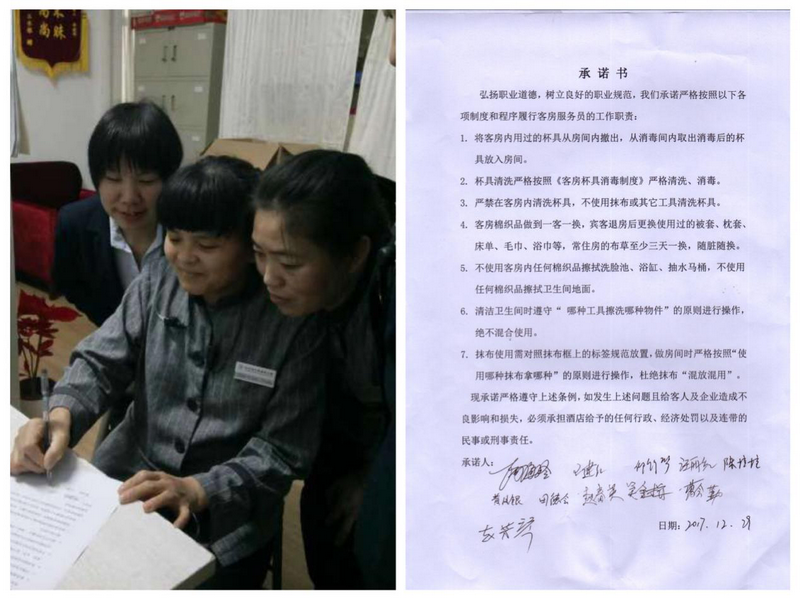 承诺书
弘扬职业道德，树立良好的职业规范，我们承诺严格按照以下各
项制度和程序履行客房服务员的工作职责：
1. 将客房内用过的杯具从房间内撤出，从消毒间内取出消毒后的杯
具放入房间。
2. 杯具清洗严格按照《客房杯具消毒制度》严格清洗、消毒。
3. 严禁在客房内清洗杯具，不使用抹布或其它工具清洗杯具。
4. 客房棉织品做到一客一换，宾客退房后更换使用过的被套、枕套、
床单、毛巾、浴巾等，常住房的布草至少三天一换，随脏随换。
5. 不使用客房内任何棉织品擦拭洗脸池、浴缸、抽水马桶，不使用
任何棉织品擦拭卫生间地面。
6. 清洁卫生间时遵守“ 哪种工具擦洗哪种物件”的原则进行操作，
绝不混合使用。
7. 抹布使用需对照抹布框上的标签规范放置，做房间时严格按照“使
用哪种抹布拿哪种”的原则进行操作，杜绝抹布“混放混用”。
现承诺严格遵守上述条例，如发生上述问题且给客人及企业造成不
良影响和损失，必须承担酒店给予的任何行政、经济处罚以及连带的
民事或刑事责任。
承诺人：
日期：2017.12.29